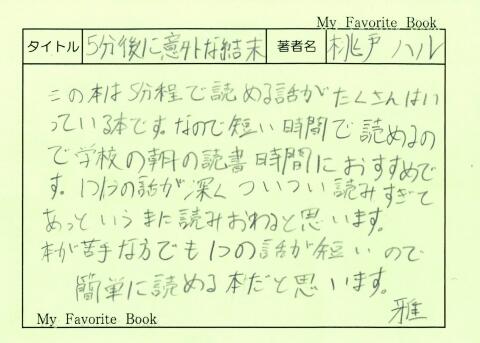 My Favorite Book
タイトル 5分後に意外な結末 著者名 桃戸 ハル
この本は5分程で読める話がたくさんはい
っている本です。なので短い時間で読めるの
で学校の朝の読書時間におすすめで
す。1つ1つの話が深くついつい読みすぎて
あっというまに読みおわると思います。
本が苦手な方でも1つの話が短いので
簡単に読める本だと思います。
雅
My Favorite Book